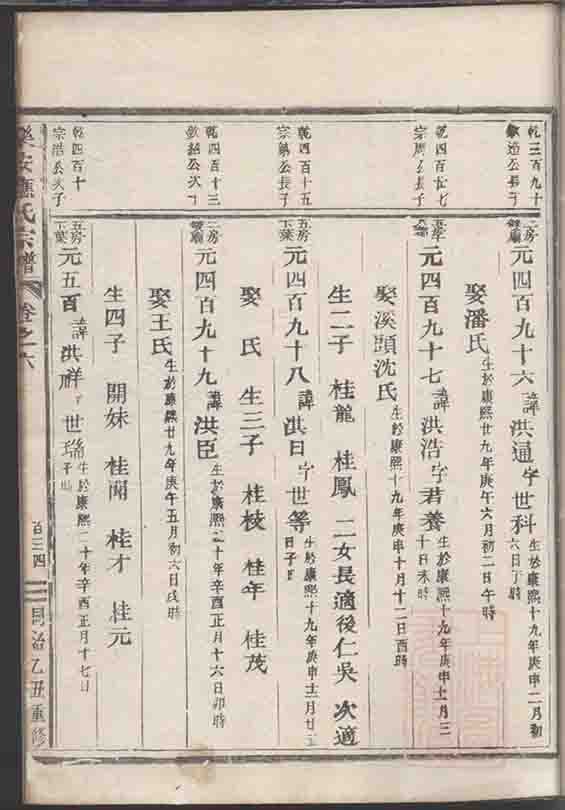 乾三百九十
公長子
二房
元四百九十六 諱洪通字世科 生於康熙十九年庚申二月初六日丁時
娶潘氏 生於康熙廿九年庚午六月初二日午時
乾四百廿七
宗周公長子
元四百九十七 諱洪浩字君養 生於康熙十九年庚申十一月三十日未時
娶溪頭沈氏 生於康熙十九年庚申十月十二日酉時
生二子 桂龍 桂鳳 二女長適後仁吳 次適
乾四百十五
宗第公長子
五房下葉
元四百九十八 諱洪日字世等 生於康熙十九年庚申十二月廿三日子時
娶 氏 生三子 桂枝 桂年 桂茂
乾四百十三
公次子
二房
元四百九十九 諱洪臣 生於康熙二十年辛酉正月十六日卯時
娶王氏 生於康熙廿九年庚午五月初六日戌時
生四子 開妹 桂開 桂才 桂元
乾四百十
宗浩公次子
五房下葉
元五百 諱洪祥字世瑞 生於康熙二十年辛酉正月十七日子時
樂安應氏宗譜 卷之六
百三四
同治乙丑重修